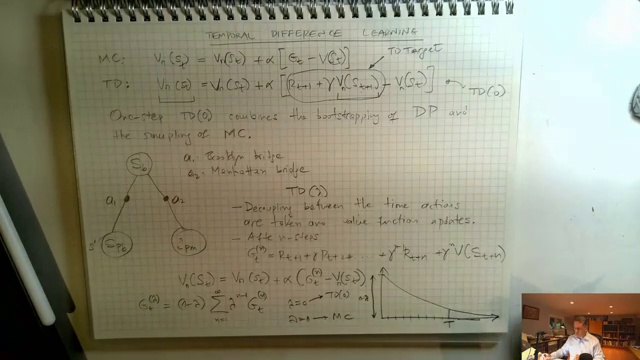 TEMPORAL DIFFERENCE LEARNING
MC: Vπ(St) = Vπ(St) + α [Gt - V(St)]
TD Target
TD: Vπ(St) = Vπ(St) + α [Rt+1 + γ Vπ(St+1) - Vπ(St)]
TD(0)
One-step TD(0) combines the bootstrapping of DP and
the sampling of MC.
S0
a1: Brooklyn bridge
a2: Manhattan bridge
a1
a2
TD(λ)
- Decoupling between the time actions
are taken and value function updates.
- After n-steps
Gt(n) = Rt+1 + γ Rt+2 + γ^n-1 Rt+n + γ^n V(St+n)
S'
Vπ(St) = Vπ(St) + α (Gt(n) - Vπ(St))
Gt(λ) = (1-λ) Σ n=1 ∞ λ^n-1 Gt(n)
λ=0 → TD(0)
λ=1 → MC
1-λ
T